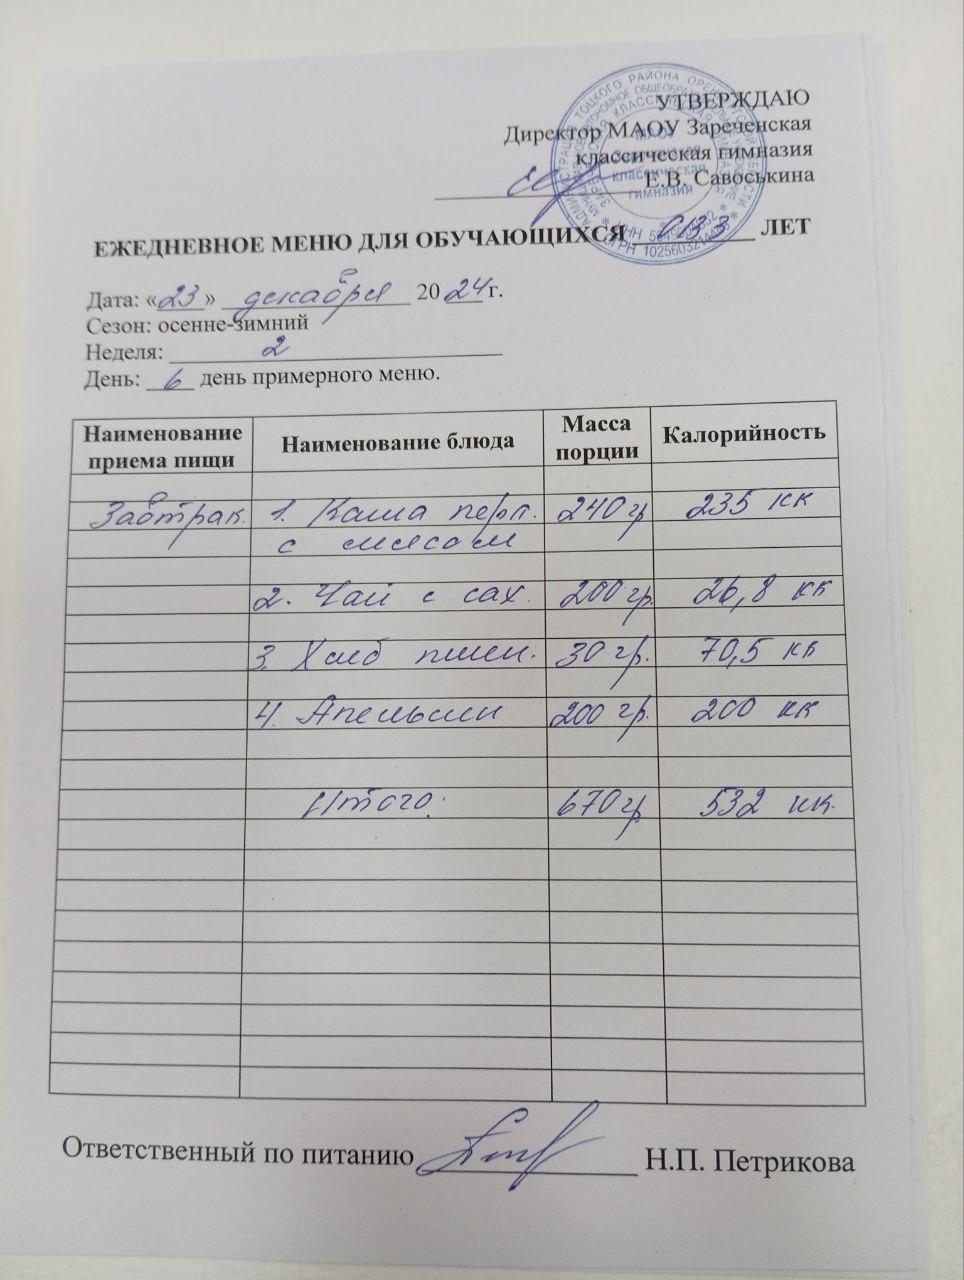 УТВЕРЖДАЮ
Директор МАОУ Зареченская
классическая гимназия
Е.В. Савоськина
МАОУ
Зареченская
классическая
гимназия
ЕЖЕДНЕВНОЕ МЕНЮ ДЛЯ ОБУЧАЮЩИХСЯ ЛЕТ
Дата: «23» декабря 2024 г.
Сезон: осенне-зимний
Неделя: 2
День: 6 день примерного меню.
Наименование приема пищи Наименование блюда Масса порции Калорийность
Завтрак 1. Каша перл. 240 гр 235 кк
с мясом
2. Чай с сах. 200 гр. 26,8 кк
3. Хлеб пшен. 30 гр. 70,5 кк
4. Апельсин 200 гр. 200 кк
Итого: 670 гр. 532 кк.
Ответственный по питанию Н.П. Петрикова